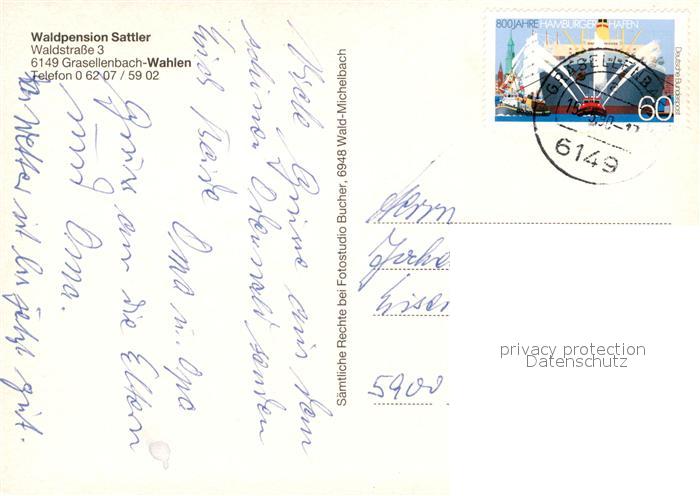 Waldpension Sattler
Waldstraße 3
6149 Grasellenbach-Wahlen
Telefon 0 62 07 / 59 02
Viele Grüße aus dem
schönen Odenwald senden
Oma u. Opa
Grüße an die Eltern
Oma.
Das Wetter ist bis jetzt gut.
Sämtliche Rechte bei Fotostudio Bucher, 6948 Wald-Michelbach
800 JAHRE HAMBURGER HAFEN
Deutsche Bundespost
60
GRASELLENBA
6149
Herrn
5900
privacy protection
Datenschutz